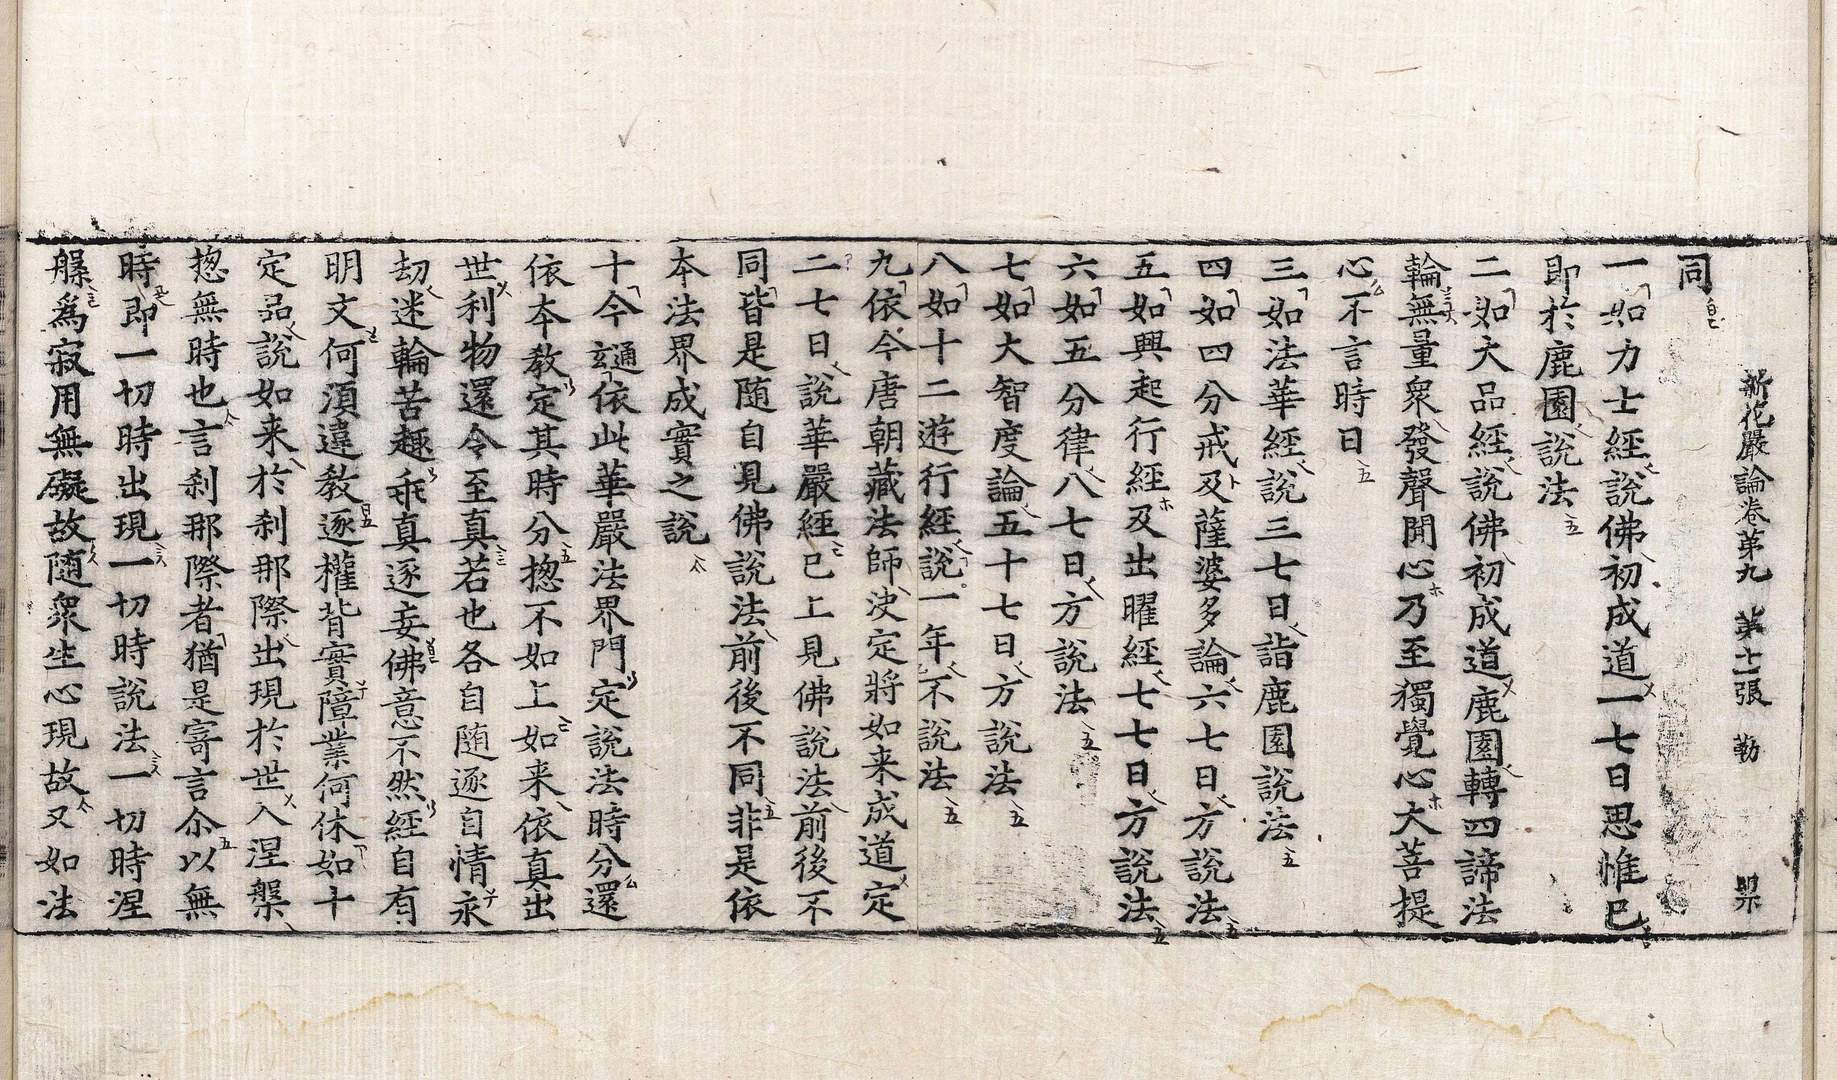 新花嚴論卷第九 第十一張 勒
同
一如力士經說佛初成道一七日思惟已
即於鹿園說法
二如大品經說佛初成道鹿園轉四諦法
輪無量衆發聲聞心乃至獨覺心大菩提
心不言時日
三如法華經說三七日詣鹿園說法
四如四分戒及薩婆多論六七日方說法
五如興起行經及出曜經七七日方說法
六如五分律八七日方說法
七如大智度論五十七日方說法
八如十二遊行經說一年不說法
九依今唐朝藏法師决定將如来成道定
二七日說華嚴經已上見佛說法前後不
同皆是随自見佛說法前後不同非是依
本法界成實之說
十今通玄依此華嚴法界門定說法時分還
依本教定其時分揔不如上如来依真出
世利物還令至真若也各自随逐自情永
劫迷輪苦趣乖真逐妄佛意不然經自有
明文何湏違教逐權背實障業何休如十
定品說如来於刹那際出現於世入涅槃
揔無時也言刹那際者猶是寄言尒以無
時即一切時出現一切時說法一切時涅
槃爲寂用無礙故随衆生心現故又如法